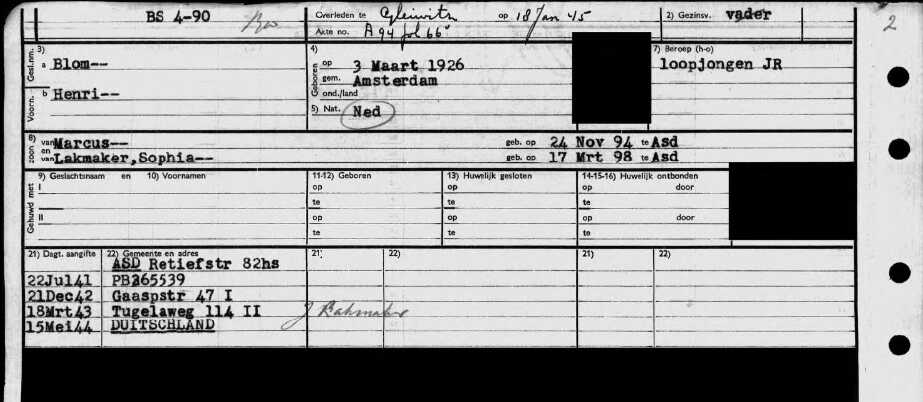 BS 4-90 Overleden te Gleiwitz op 18 Jan 45 2) Gezinsv. vader 2
Akte no. A 94 fol 66
Gesl.nm. 3) a Blom-- 4) Geboren op 3 Maart 1926 7) Beroep (h-o)
gem. Amsterdam loopjongen JR
Voorn. b Henri-- ond./land
5) Nat. Ned
8) zoon van Marcus-- geb. op 24 Nov 94 te Asd
en van Lakmaker,Sophia-- geb. op 17 Mrt 98 te Asd
Gehuwd met 9) Geslachtsnaam en 10) Voornamen 11-12) Geboren 13) Huwelijk gesloten 14-15-16) Huwelijk ontbonden
I op op op door
te te te
II op op op door
te te te
21) Dagt. aangifte 22) Gemeente en adres 21) 22) 21) 22)
ASD Retiefstr 82hs
22Jul41 PB265539
21Dec42 Gaaspstr 47 I
18Mrt43 Tugelaweg 114 II
15Mei44 DUITSCHLAND